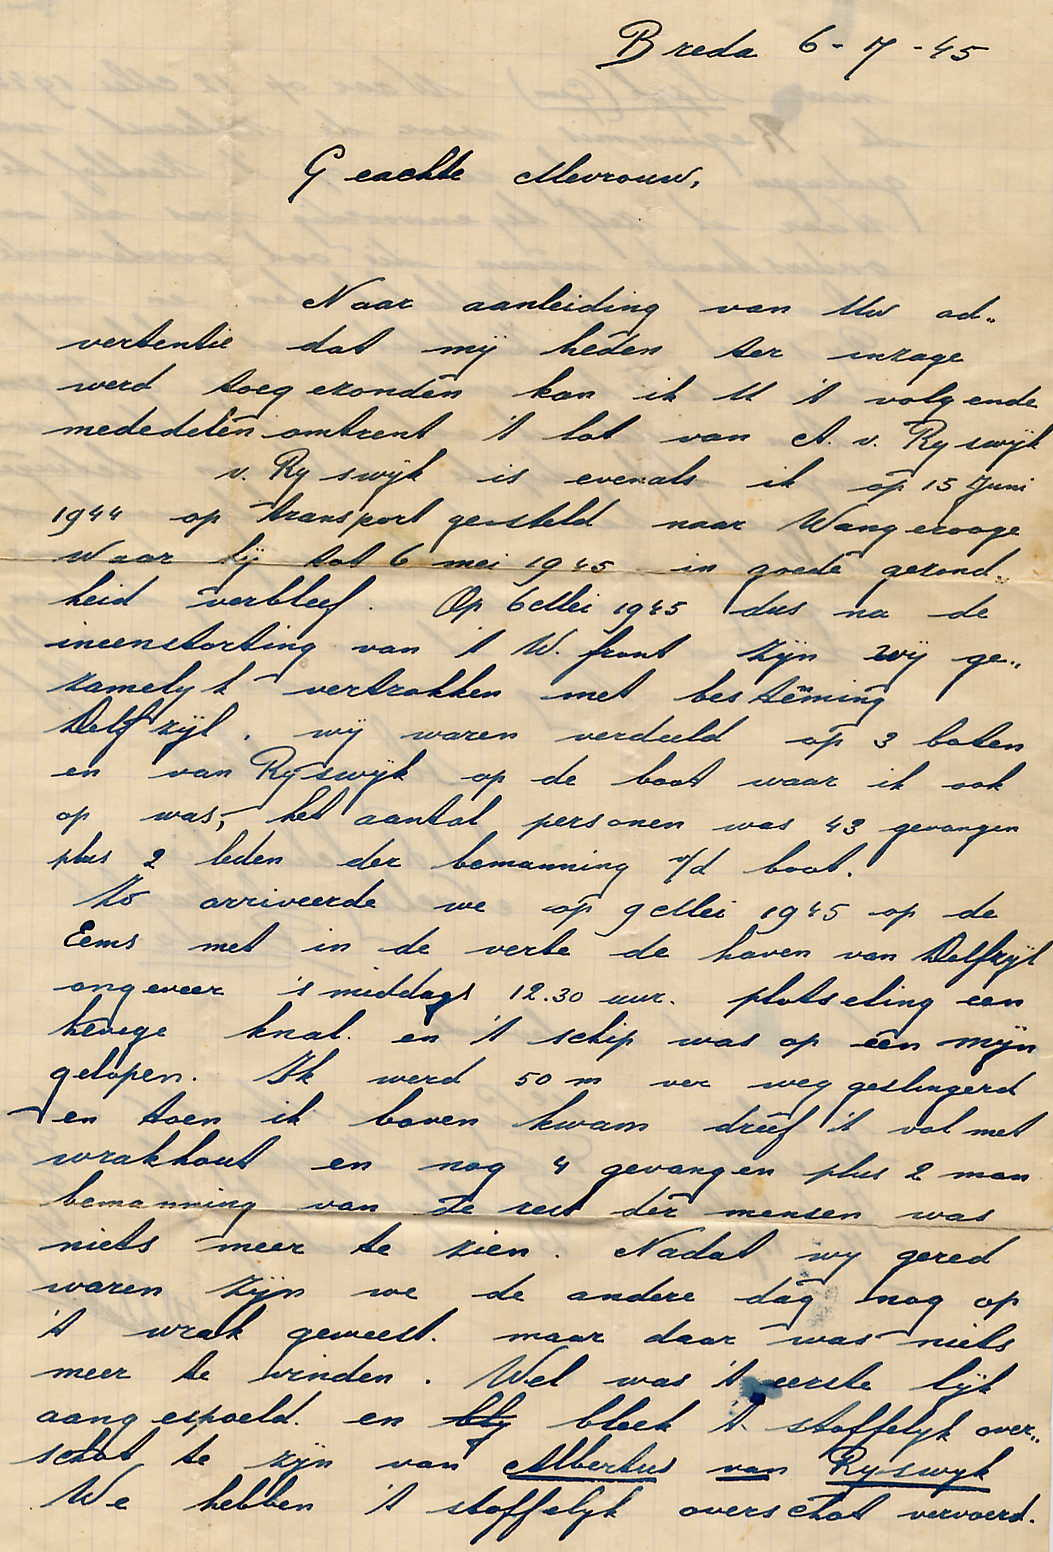 Breda 6-7-45
Geachte Mevrouw,
Naar aanleiding van Uw ad„
vertentie dat mij heden ter inzage
werd toegezonden kan ik U 't volgende
mededelen omtrent 't lot van A. v. Ryswijk
v. Ryswijk is evenals ik op 15 Juni
1944 op transport gesteld naar Wangerooge
waar hij tot 6 mei 1945 in goede gezond„
heid verbleef. Op 6 Mei 1945 dus na de
ineenstorting van 't W. front zijn wij ge„
zamelyk vertrokken met besteming
Delfzijl. wij waren verdeeld op 3 boten
en van Ryswyk op de boot waar ik ook
op was, het aantal personen was 43 gevangen
plus 2 leden der bemanning v/d boot.
Zo arriveerde we op 9 Mei 1945 op de
Eems met in de verte de haven van Delfzijl
ongeveer 's middags 12.30 uur. plotseling een
hevege knal. en 't schip was op een mijn
gelopen. Ik werd 50 m ver weg geslingerd
en toen ik boven kwam dreef 't vol met
wrakhout en nog 4 gevangen plus 2 man
bemanning van de rest der mensen was
niets meer te zien. Nadat wy gered
waren zijn we de andere dag nog op
't wrak geweest. maar daar was niets
meer te vinden. Wel was 't eerste lijk
aangespoeld. en bleek 't stoffelyk over„
schot te zijn van Albertus van Ryswyk
We hebben 't stoffelyk overschot vervoerd.